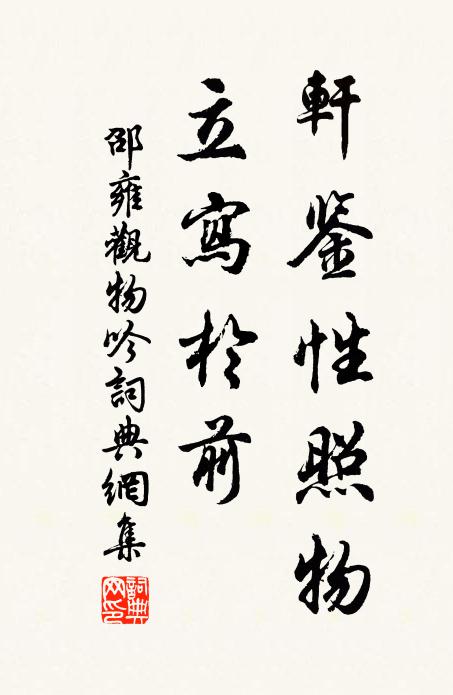 軒鉴性照物
立寫於前
邵雍觀物吟詞典網集
詞典网印